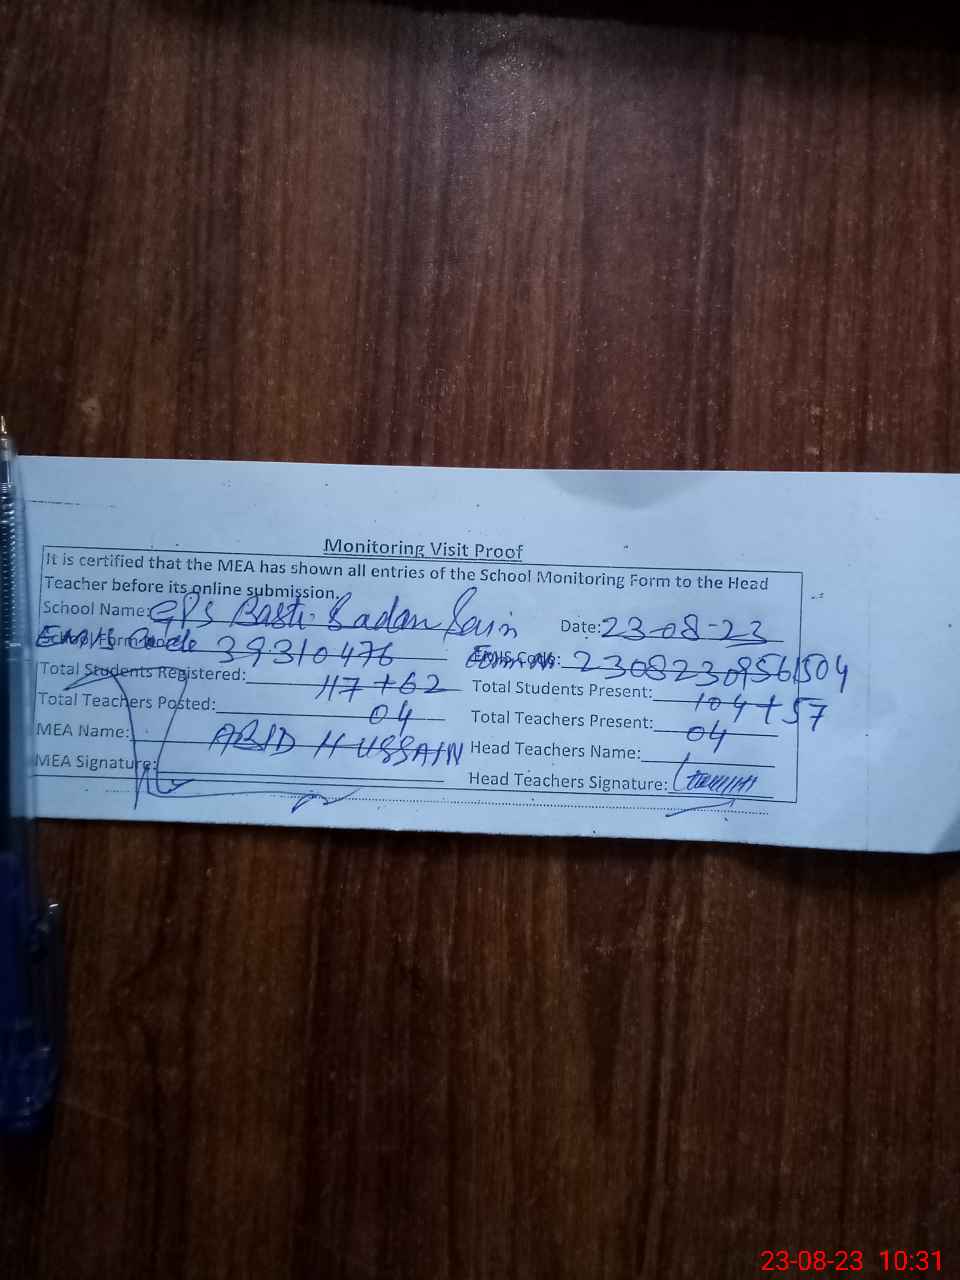 Monitoring Visit Proof
It is certified that the MEA has shown all entries of the School Monitoring Form to the Head
Teacher before its online submission.
School Name: GPS Basti Sadan Sain Date: 23-08-23
EMIS Code 39310476 Form No: 230823
Total Students Registered: 117+62 Total Students Present: 104+57
Total Teachers Posted: 04 Total Teachers Present: 04
MEA Name: ABID HUSSAIN Head Teachers Name:
MEA Signature: Head Teachers Signature:
23-08-23 10:31